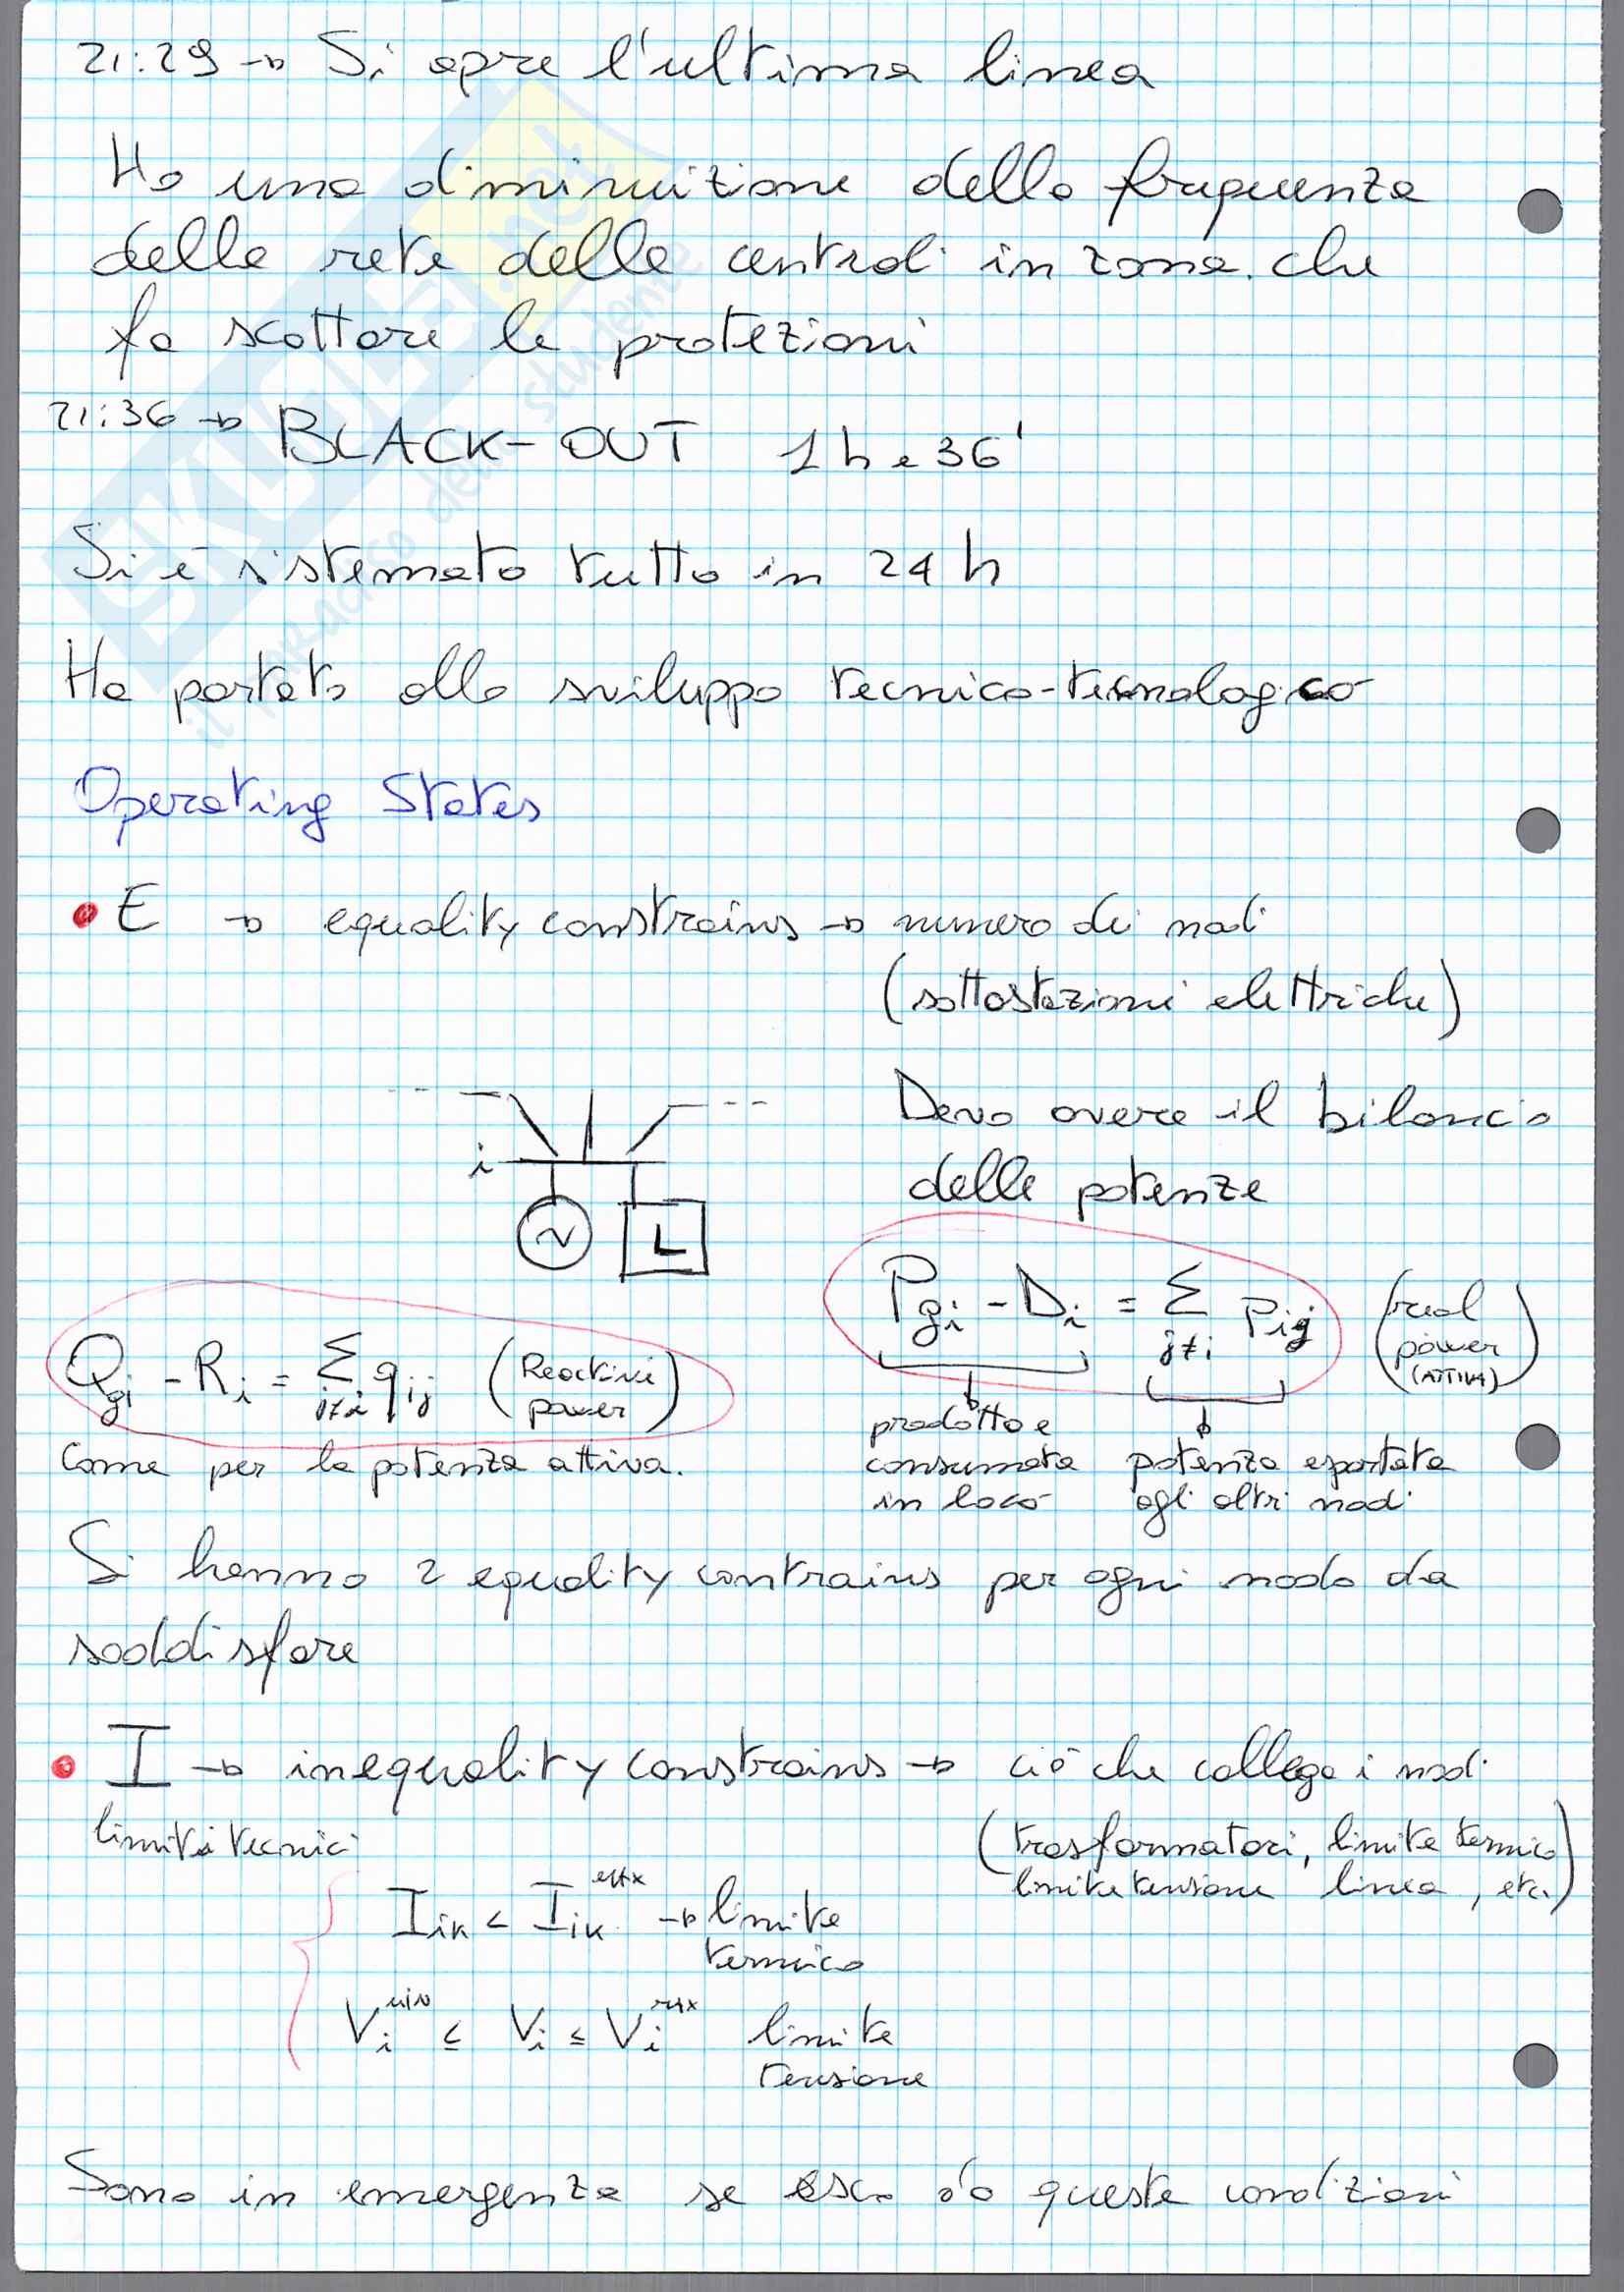 21:29 → Si apre l'ultima linea
Ho una diminuizione della frequenza
della rete delle centrali in zona che
fa scattare le protezioni
21:36 → BLACK-OUT 1 h e 36'
Si è sistemato tutto in 24 h
Ha portato allo sviluppo tecnico-tecnologico
Operating States
• E → equality constrains → numero dei nodi
(sottostazioni elettriche)
Devo avere il bilancio
delle potenze
i
~ L
Pgi - Di = Σ j≠i Pij (real power (ATTIVA))
Qgi - Ri = Σ j≠i qij (Reactive power)
prodotto e
consumata
in loco
potenza esportata
agli altri nodi
Come per la potenza attiva.
Si hanno 2 equality contrains per ogni nodo da
soddisfare
• I → inequality constrains → ciò che collega i nodi
limiti tecnici
(trasformatori, limite termico
limite tensione linea, etc.)
Iik < Iik max → limite
termico
Vi min ≤ Vi ≤ Vi max limite
tensione
Sono in emergenza se esco da queste condizioni
SKUOLA.net
il paradiso dello studente